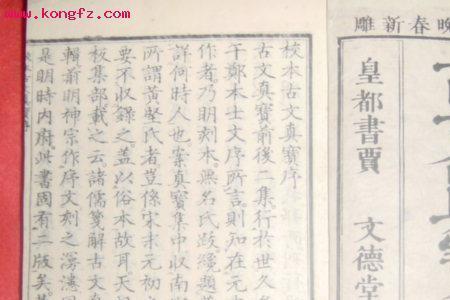 www.kongfz.com
晚春新雕
皇都書賈 文德堂
校本古文真寶序
古文真寶前後二集行於世久
于鄭本士文序所言則知在元
作者乃明刻本無名氏跋纔題
詳何時人也案真寶集中收南
所謂黃堅氏者豈係宋末元初
要不收錄之蓋以俗本故耳天
板集部載之云諸儒箋解古文
輯前明神宗作序文刻之
是明時内府此書固有二版矣